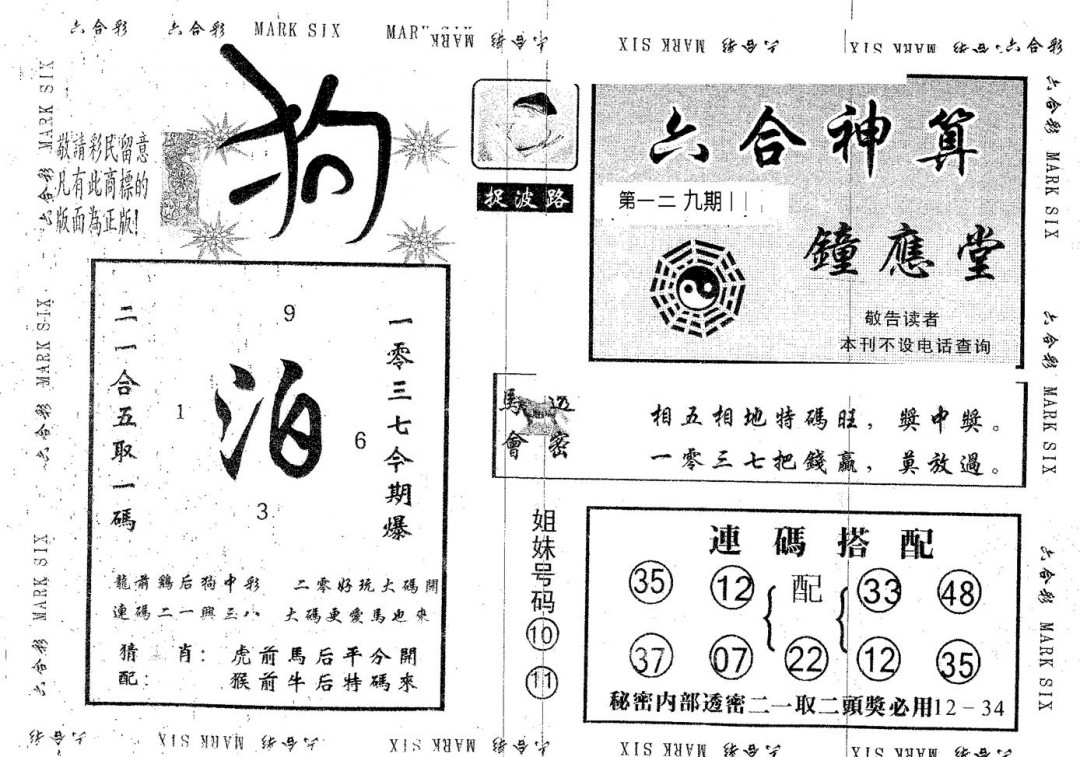 六合彩 六合彩 MARK SIX MAR MARK 六合彩 MARK SIX 六合彩 MARK SIX 六合彩 六合彩
六合彩 MARK SIX 六合彩 MARK SIX 六合彩 MARK SIX 六合彩
狗
敬請彩民留意
凡有此商標的
版面為正版!
二一合五取一碼
9
1
泊
6
3
一零三七今期爆
龍前鷄后狗中彩 二零好玩大碼開
連碼二一興三八 大碼更愛馬也來
猜 肖: 虎前馬后平分開
配: 猴前牛后特碼來
捉波路
六合神算
第一二九期
鐘應堂
敬告读者
本刊不设电话查询
馬會
透密
相五相地特碼旺,獎中獎。
一零三七把錢贏,莫放過。
姐妹号码
10
11
連碼搭配
35 12 配 33 48
37 07 22 12 35
秘密内部透密二一取二頭獎必用12-34
六合彩 MARK SIX 六合彩 MARK SIX 六合彩 MARK SIX
六合彩 MARK SIX 六合彩 MARK SIX 六合彩 MARK SIX 六合彩 MARK SIX 六合彩